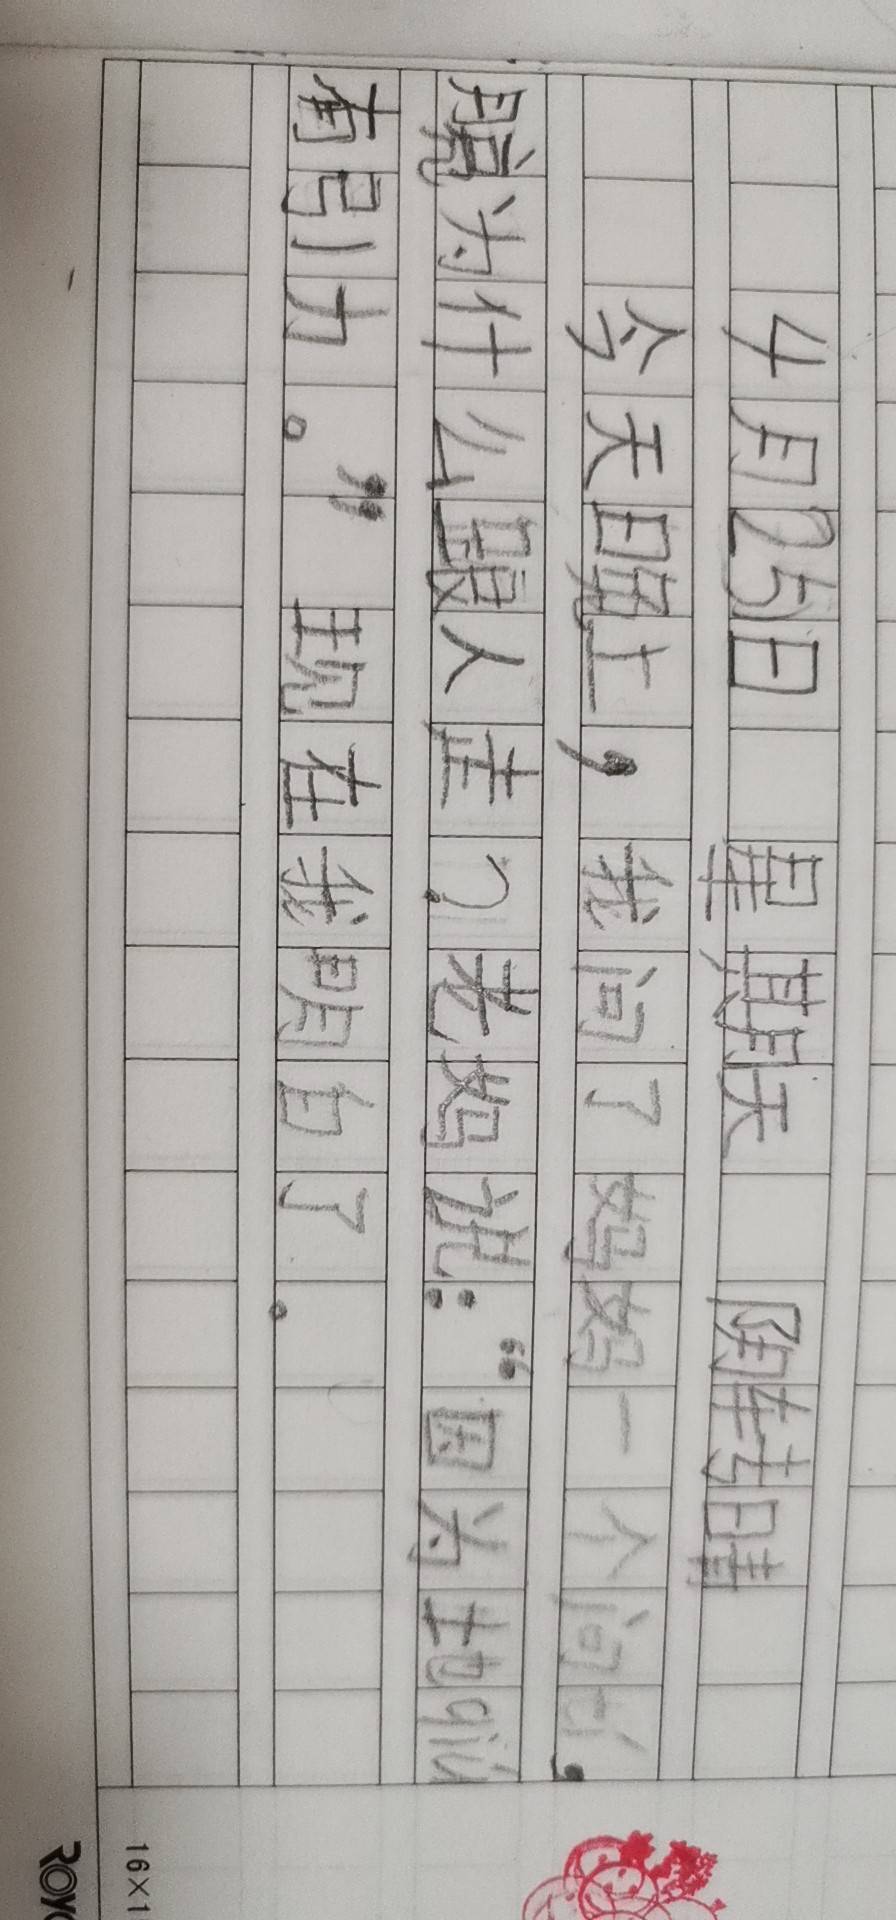 4月25日 星期天 阴转晴
今天晚上，我问了妈妈一个问tí，
为什么跟人走？老妈说：“因为地qiú
有引力。”现在我明白了。
16×1
ROYC